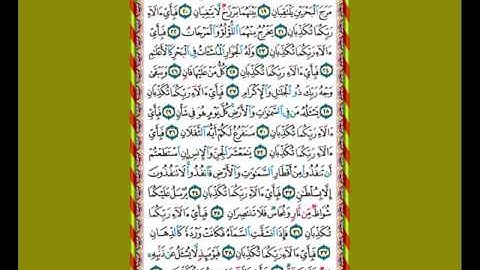 مَرَجَ ٱلْبَحْرَيْنِ يَلْتَقِيَانِ ١٩ بَيْنَهُمَا بَرْزَخٌ لَّا يَبْغِيَانِ ٢٠ فَبِأَيِّ ءَالَآءِ
رَبِّكُمَا تُكَذِّبَانِ ٢١ يَخْرُجُ مِنْهُمَا ٱللُّؤْلُؤُ وَٱلْمَرْجَانُ ٢٢ فَبِأَيِّ
ءَالَآءِ رَبِّكُمَا تُكَذِّبَانِ ٢٣ وَلَهُ ٱلْجَوَارِ ٱلْمُنشَـَٔاتُ فِى ٱلْبَحْرِ كَٱلْأَعْلَـٰمِ
٢٤ فَبِأَيِّ ءَالَآءِ رَبِّكُمَا تُكَذِّبَانِ ٢٥ كُلُّ مَنْ عَلَيْهَا فَانٍ ٢٦ وَيَبْقَىٰ
وَجْهُ رَبِّكَ ذُو ٱلْجَلَـٰلِ وَٱلْإِكْرَامِ ٢٧ فَبِأَيِّ ءَالَآءِ رَبِّكُمَا تُكَذِّبَانِ
٢٨ يَسْـَٔلُهُۥ مَن فِى ٱلسَّمَـٰوَٰتِ وَٱلْأَرْضِ كُلَّ يَوْمٍ هُوَ فِى شَأْنٍ ٢٩ فَبِأَيِّ
ءَالَآءِ رَبِّكُمَا تُكَذِّبَانِ ٣٠ سَنَفْرُغُ لَكُمْ أَيُّهَ ٱلثَّقَلَانِ ٣١ فَبِأَيِّ
ءَالَآءِ رَبِّكُمَا تُكَذِّبَانِ ٣٢ يَـٰمَعْشَرَ ٱلْجِنِّ وَٱلْإِنسِ إِنِ ٱسْتَطَعْتُمْ
أَن تَنفُذُوا۟ مِنْ أَقْطَارِ ٱلسَّمَـٰوَٰتِ وَٱلْأَرْضِ فَٱنفُذُوا۟ لَا تَنفُذُونَ
إِلَّا بِسُلْطَـٰنٍ ٣٣ فَبِأَيِّ ءَالَآءِ رَبِّكُمَا تُكَذِّبَانِ ٣٤ يُرْسَلُ عَلَيْكُمَا
شُوَاظٌ مِّن نَّارٍ وَنُحَاسٌ فَلَا تَنتَصِرَانِ ٣٥ فَبِأَيِّ ءَالَآءِ رَبِّكُمَا
تُكَذِّبَانِ ٣٦ فَإِذَا ٱنشَقَّتِ ٱلسَّمَآءُ فَكَانَتْ وَرْدَةً كَٱلدِّهَانِ
٣٧ فَبِأَيِّ ءَالَآءِ رَبِّكُمَا تُكَذِّبَانِ ٣٨ فَيَوْمَئِذٍ لَّا يُسْـَٔلُ عَن ذَنۢبِهِۦٓ